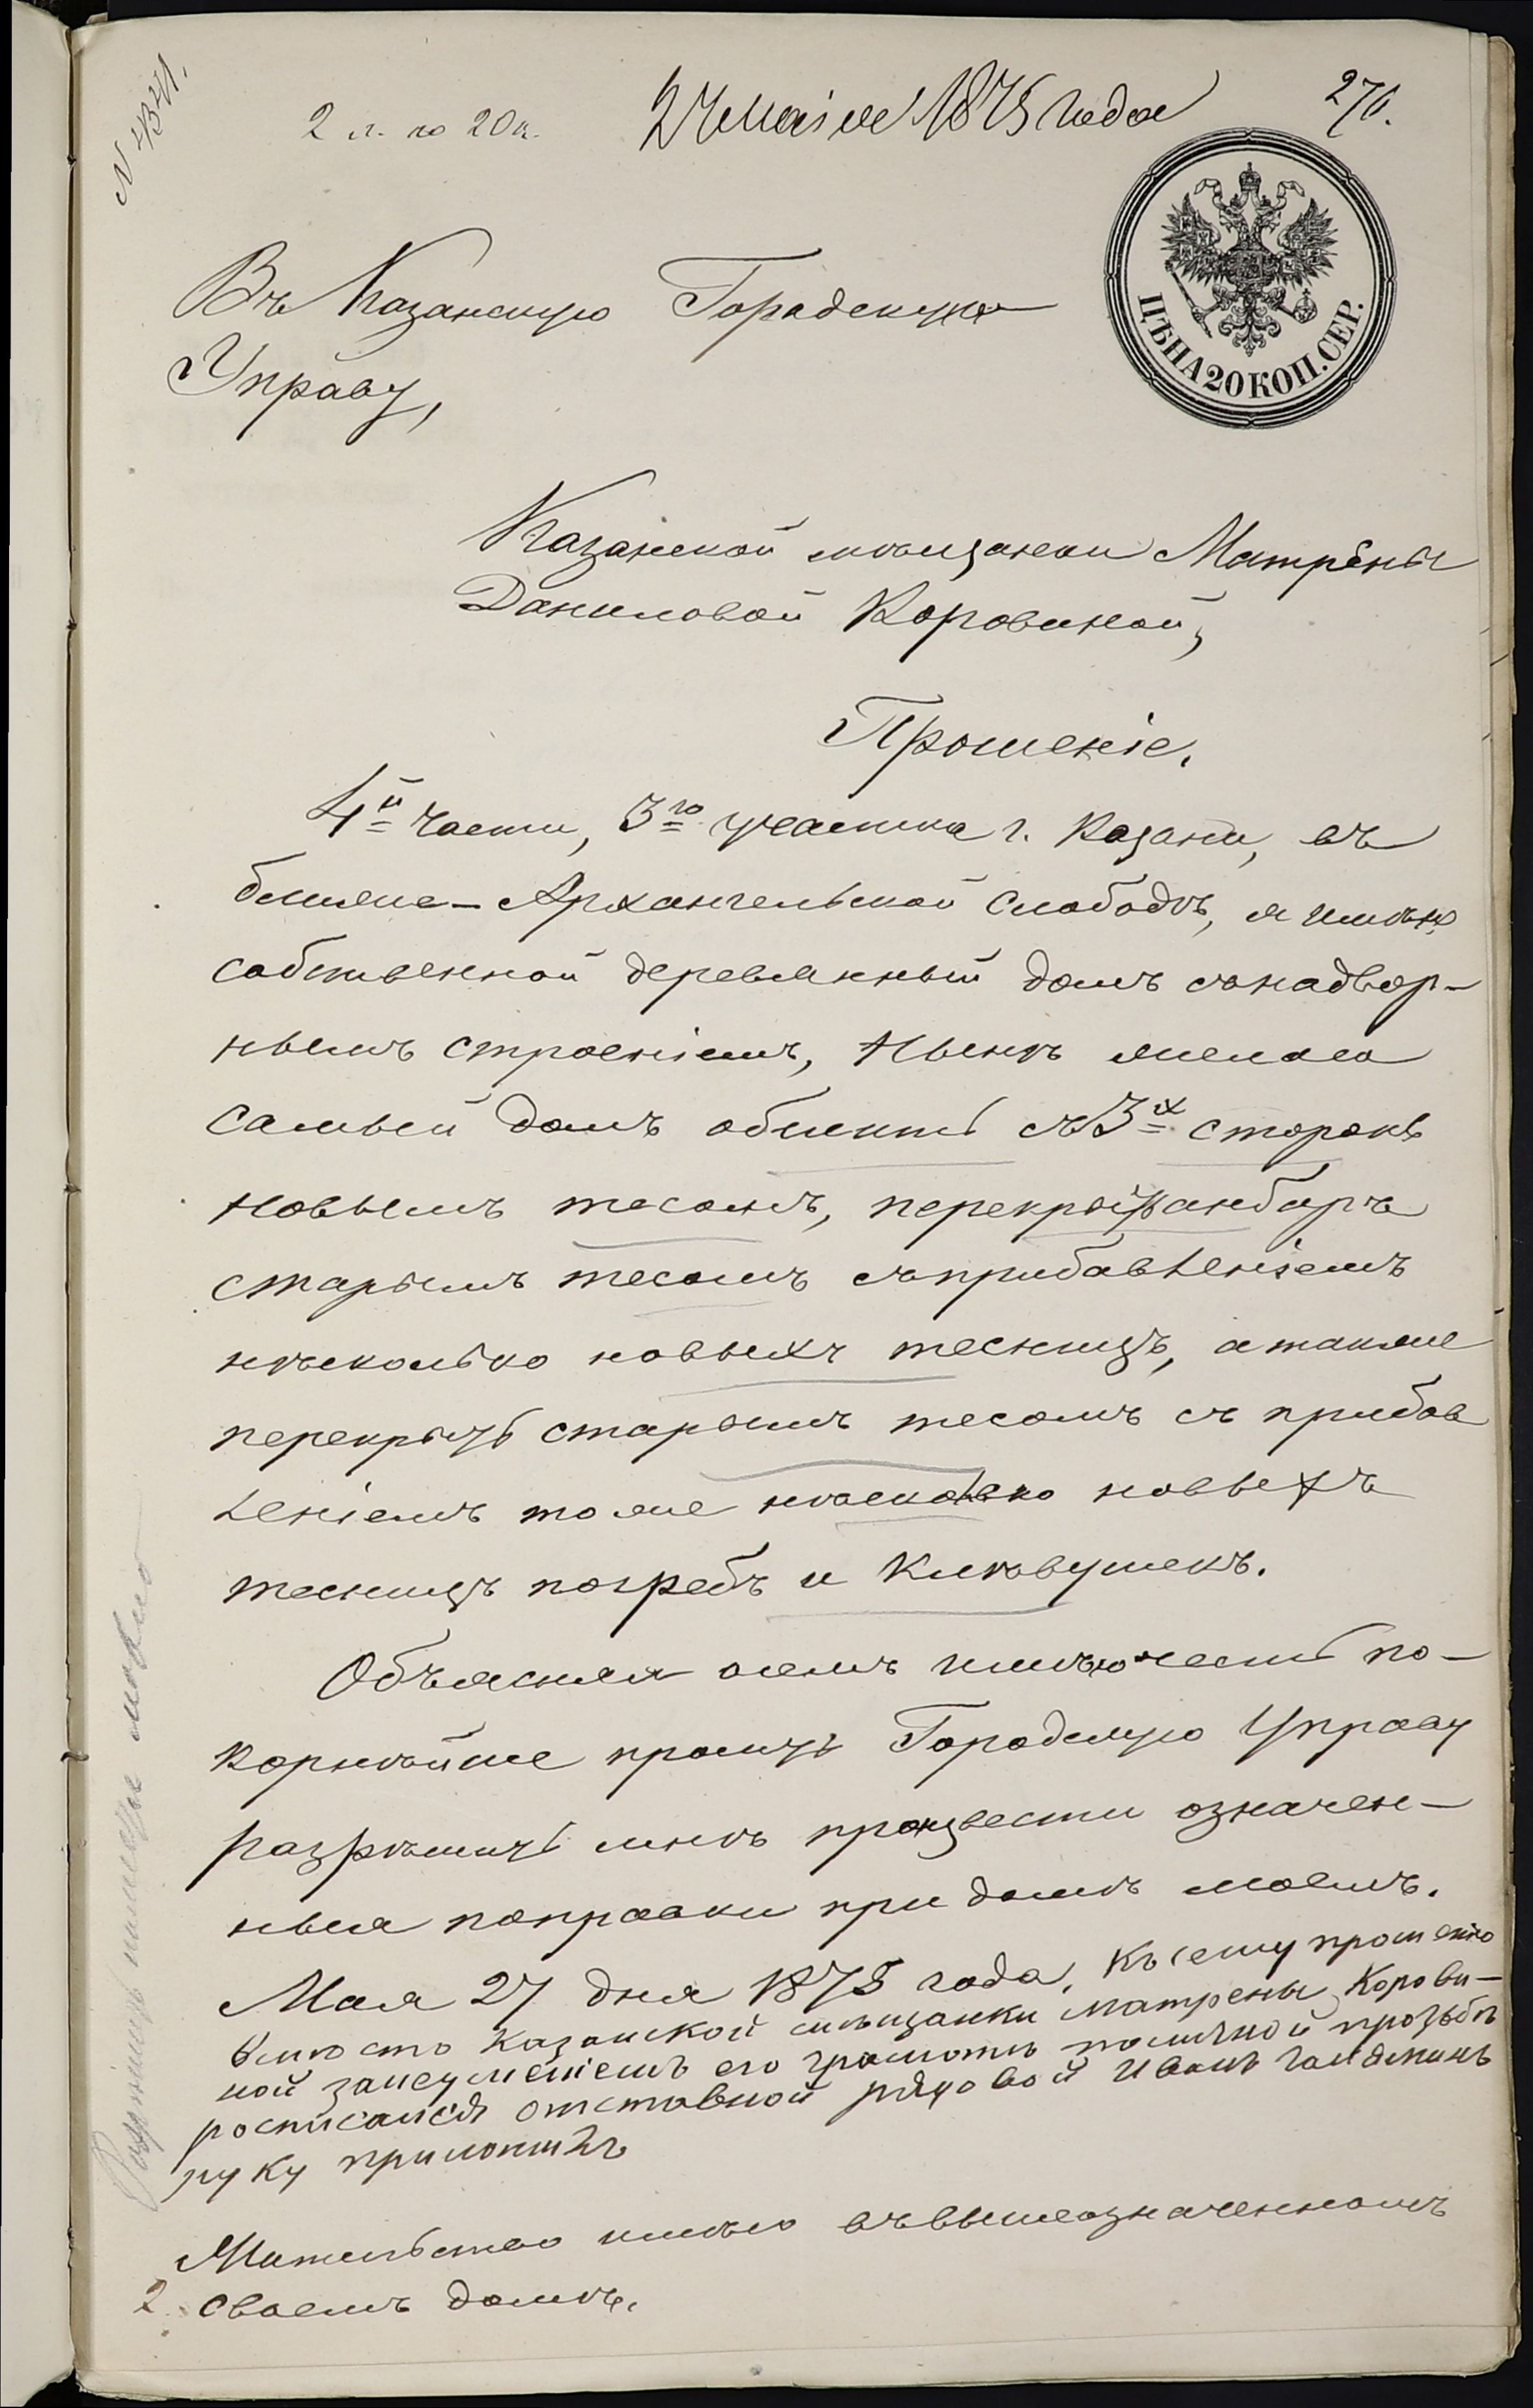 N 4341.
2 л. по 20 к.
27 маія 1875 года
270.
ЦѢНА 20 КОП. СЕР.
Въ Казанскую Городскую
Управу,
Казанской мѣщанки Матрены
Даниловой Коровиной,
Прошеніе.
4й части, 3го участка г. Казани, въ
ближне-Архангельской слободѣ, я имѣю
собственной деревянный домъ снадвор-
нымъ строеніемъ, Нынѣ желаю
самый домъ обшить съ 3х сторонъ
новымъ тесомъ, перекрыть анбаръ
старымъ тесомъ съприбавленіемъ
нѣсколько новыхъ тесницъ, а также
перекрыть старымъ тесомъ съ прибав
леніемъ тоже нѣсколько новыхъ
тесницъ погребъ и Клѣвушекъ.
Объясняя осемъ имѣю честь по-
корнѣйше просить Городскую Управу
разрѣшить мнѣ произвести означен-
ныя поправки при домѣ моемъ.
Мая 27 дня 1875 года. Къ сему прошенію
вмѣсто Казанской мѣщанки Матрены Корови-
ной занеуменіемъ его грамоты поличной прозьбѣ
росписался отставной рядовой Иванъ
руку приложилъ
Жительство имѣю въвышеозначенномъ
2 своемъ домѣ.